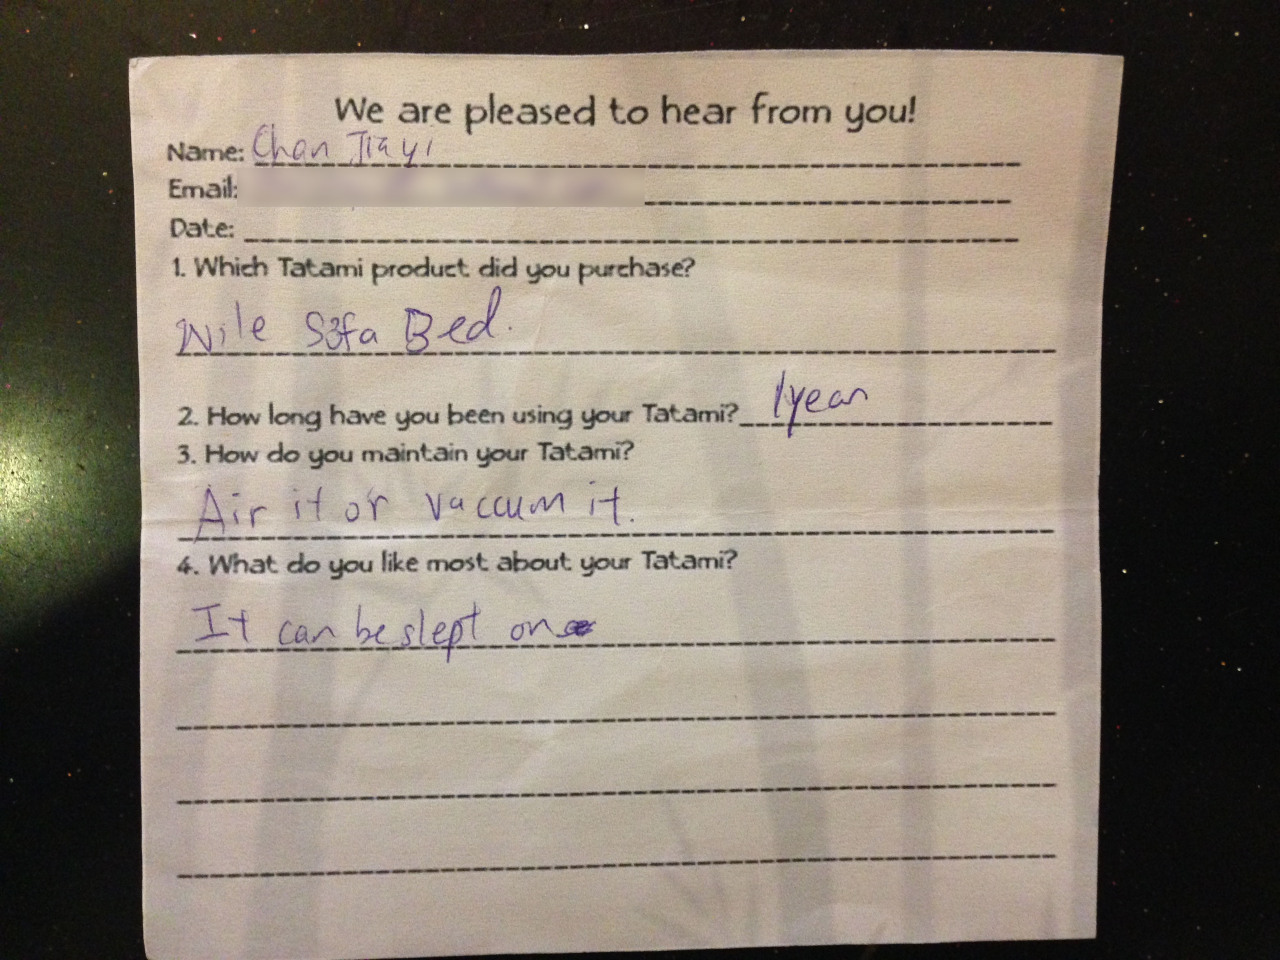 We are pleased to hear from you!
Name: Chan Jiayi
Email:
Date:
1. Which Tatami product did you purchase?
Nile Sofa Bed.
2. How long have you been using your Tatami? 1year
3. How do you maintain your Tatami?
Air it or vaccum it.
4. What do you like most about your Tatami?
It can be slept on